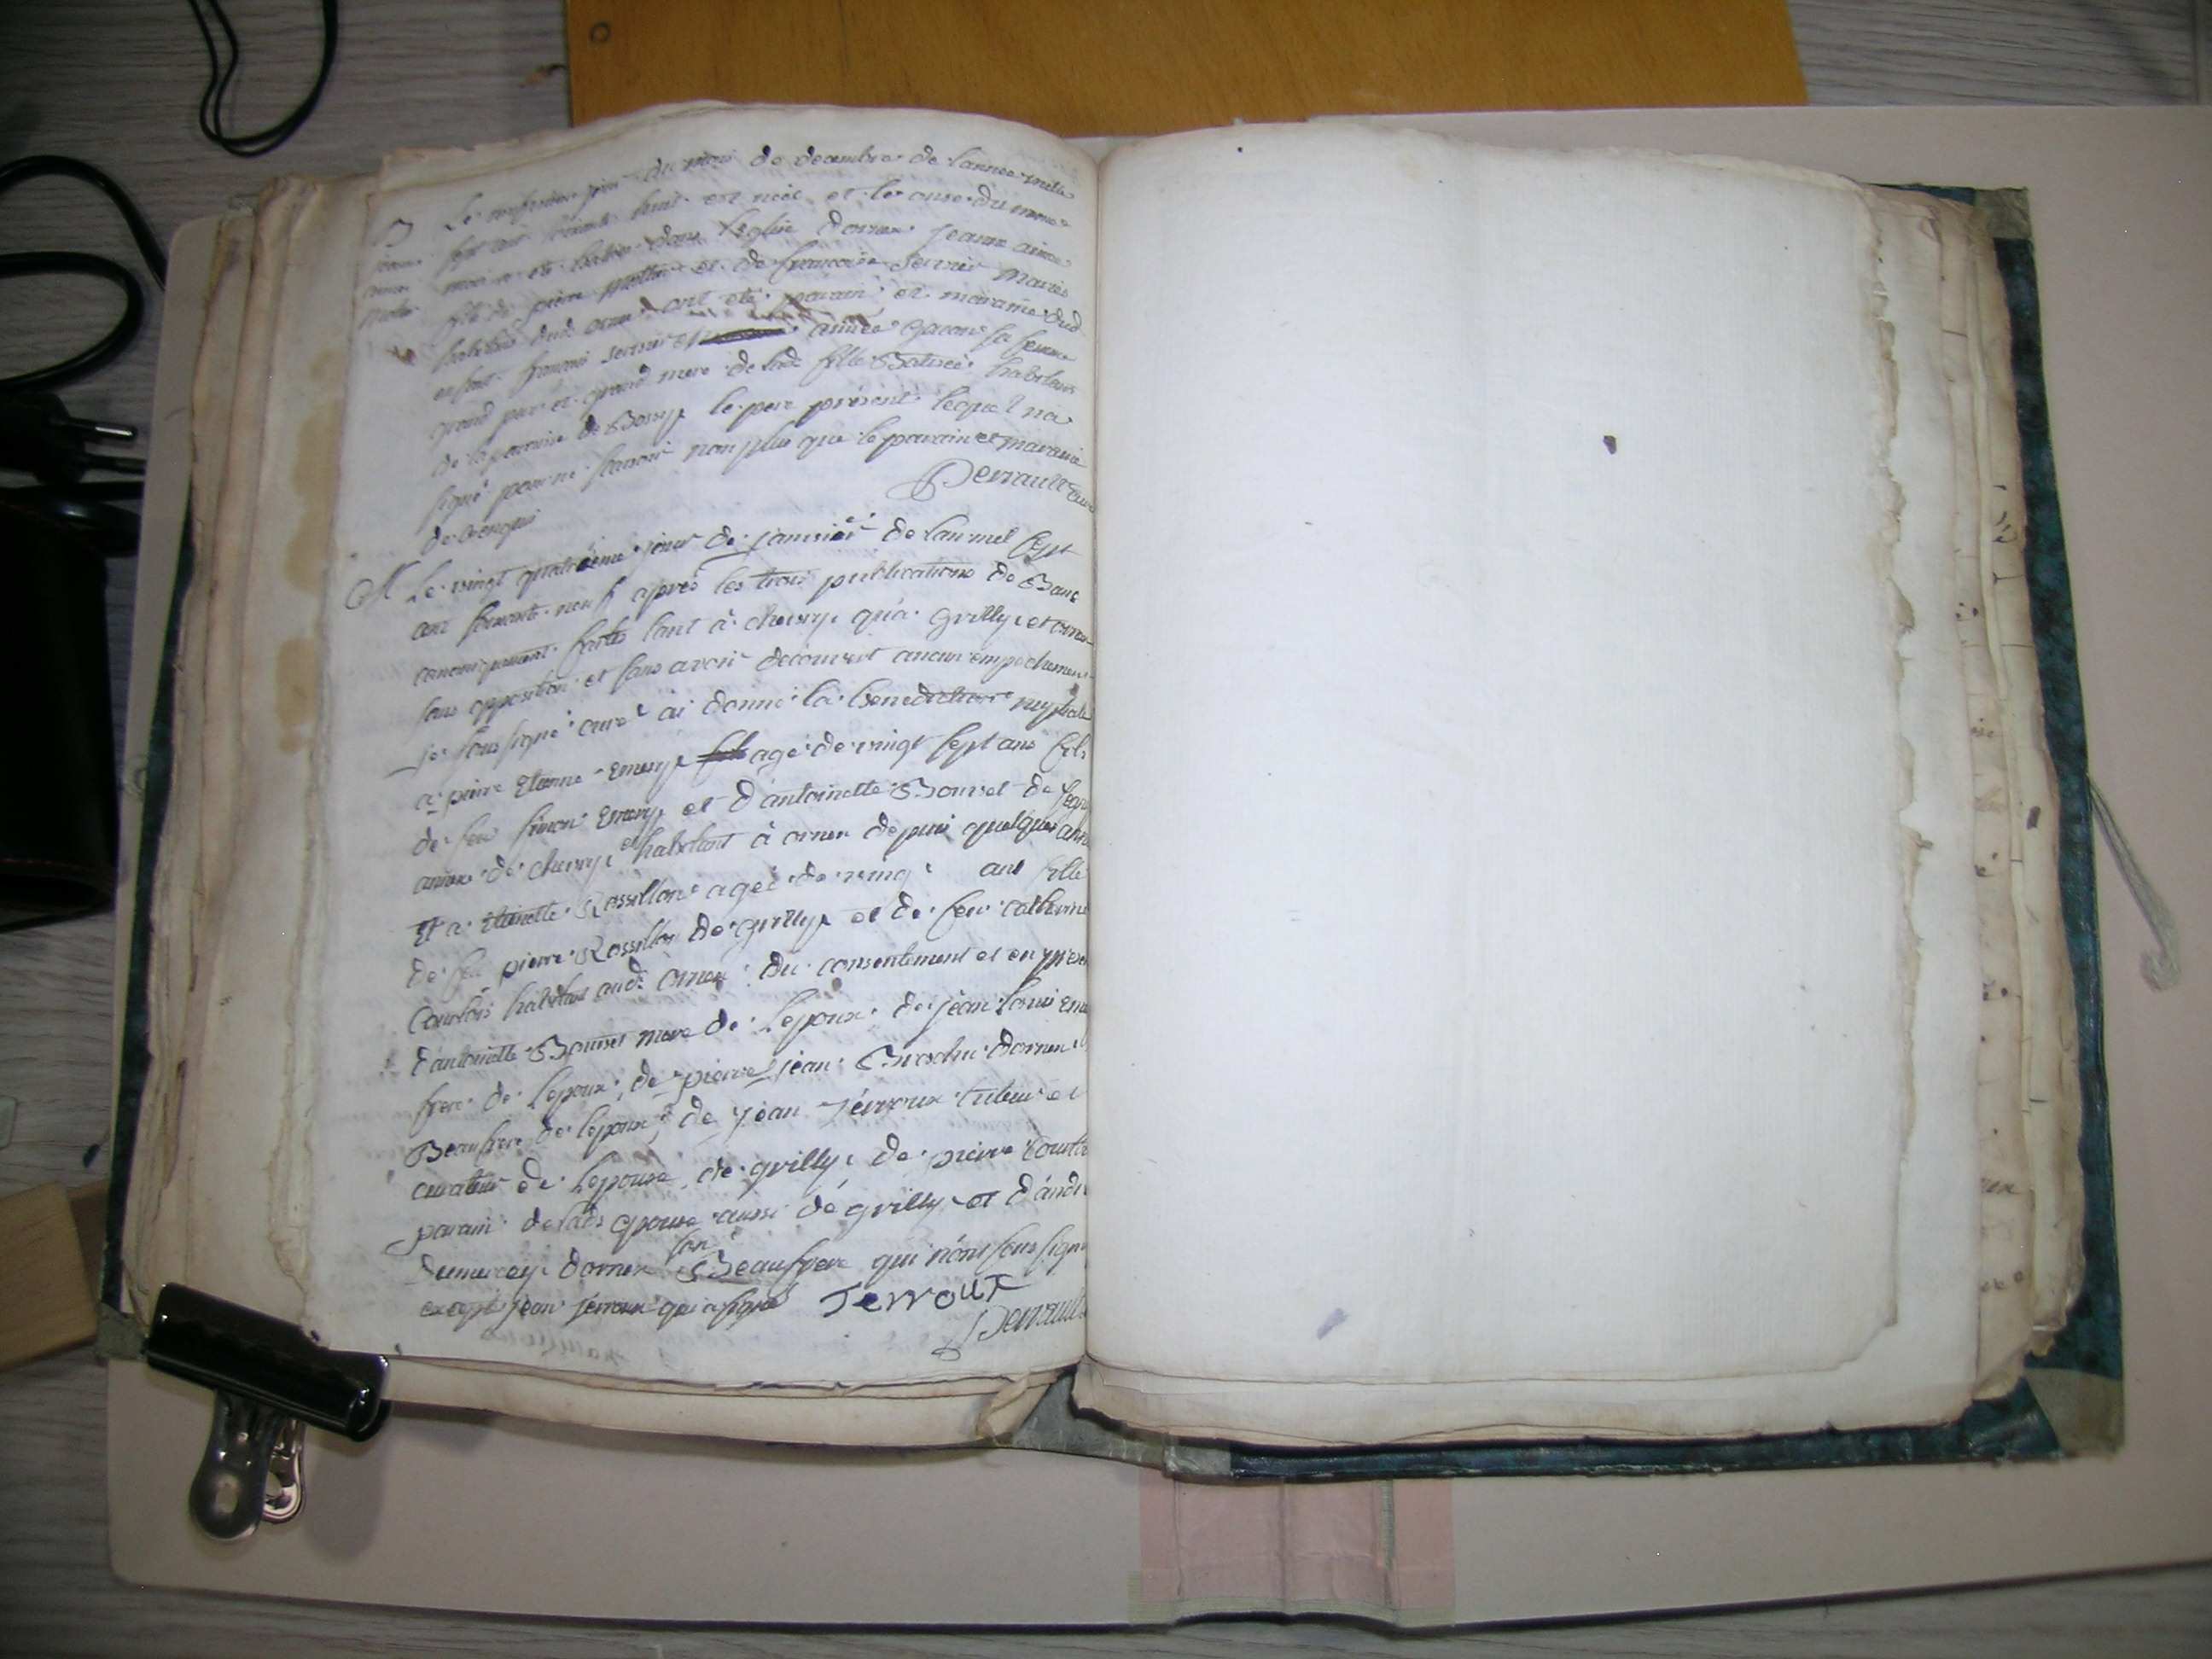 B Le jour du mois de decembre de l'année mille
jeanne sept cent soixante huit est née et le onze du meme
aimée mois a été batisée dans l'eglise d'ornex jeanne aimée
fille de pierre et de françoise servier mariés
habitans dud. ornex ont été parain et maraine dud
enfant françois servier et aimée gacon sa femme
grand pere et grand mere de lade fille Batisée habitans
de la paroisse de Bossy le pere présent lequel na
signé pour ne scavoir non plus que le parain et maraine
de ce enquis Perrault curé
M Le vingt quatrième jour de janvier de l'an mil sept
cent soixante neuf après les trois publications de Bans
canoniquement faites tant à chevry qu'à grilly et ornex
sans opposition et sans avoir decouvert aucun empechement
je soussigné curé ai donné la benediction nuptiale
a pierre Etienne Emery agé de vingt sept ans fils
de feu simon Emery et d'antoinette Bouvet de
de chevry et habitant à ornex depuis quelques ann
Et a Rossillon agée de vingt ans fille
de feu pierre Rossillon de grilly et de feu catherine
Courtois habitant aud. ornex du consentement et en presen
d'antoinette Bouvet mere de l'epoux de jean louis Eme
frere de l'epoux, de pierre jean Brochu d'ornex
Beaufrere de l'epoux, de jean Terroux tuteur et
curateur de l'epouse de grilly de pierre Courto
parain de lade epouse aussi de grilly et d'andr
Dumurcey d'ornex son Beaufrere qui n'ont sous signé
excepté jean Terroux qui a signé Terroux
Perrault